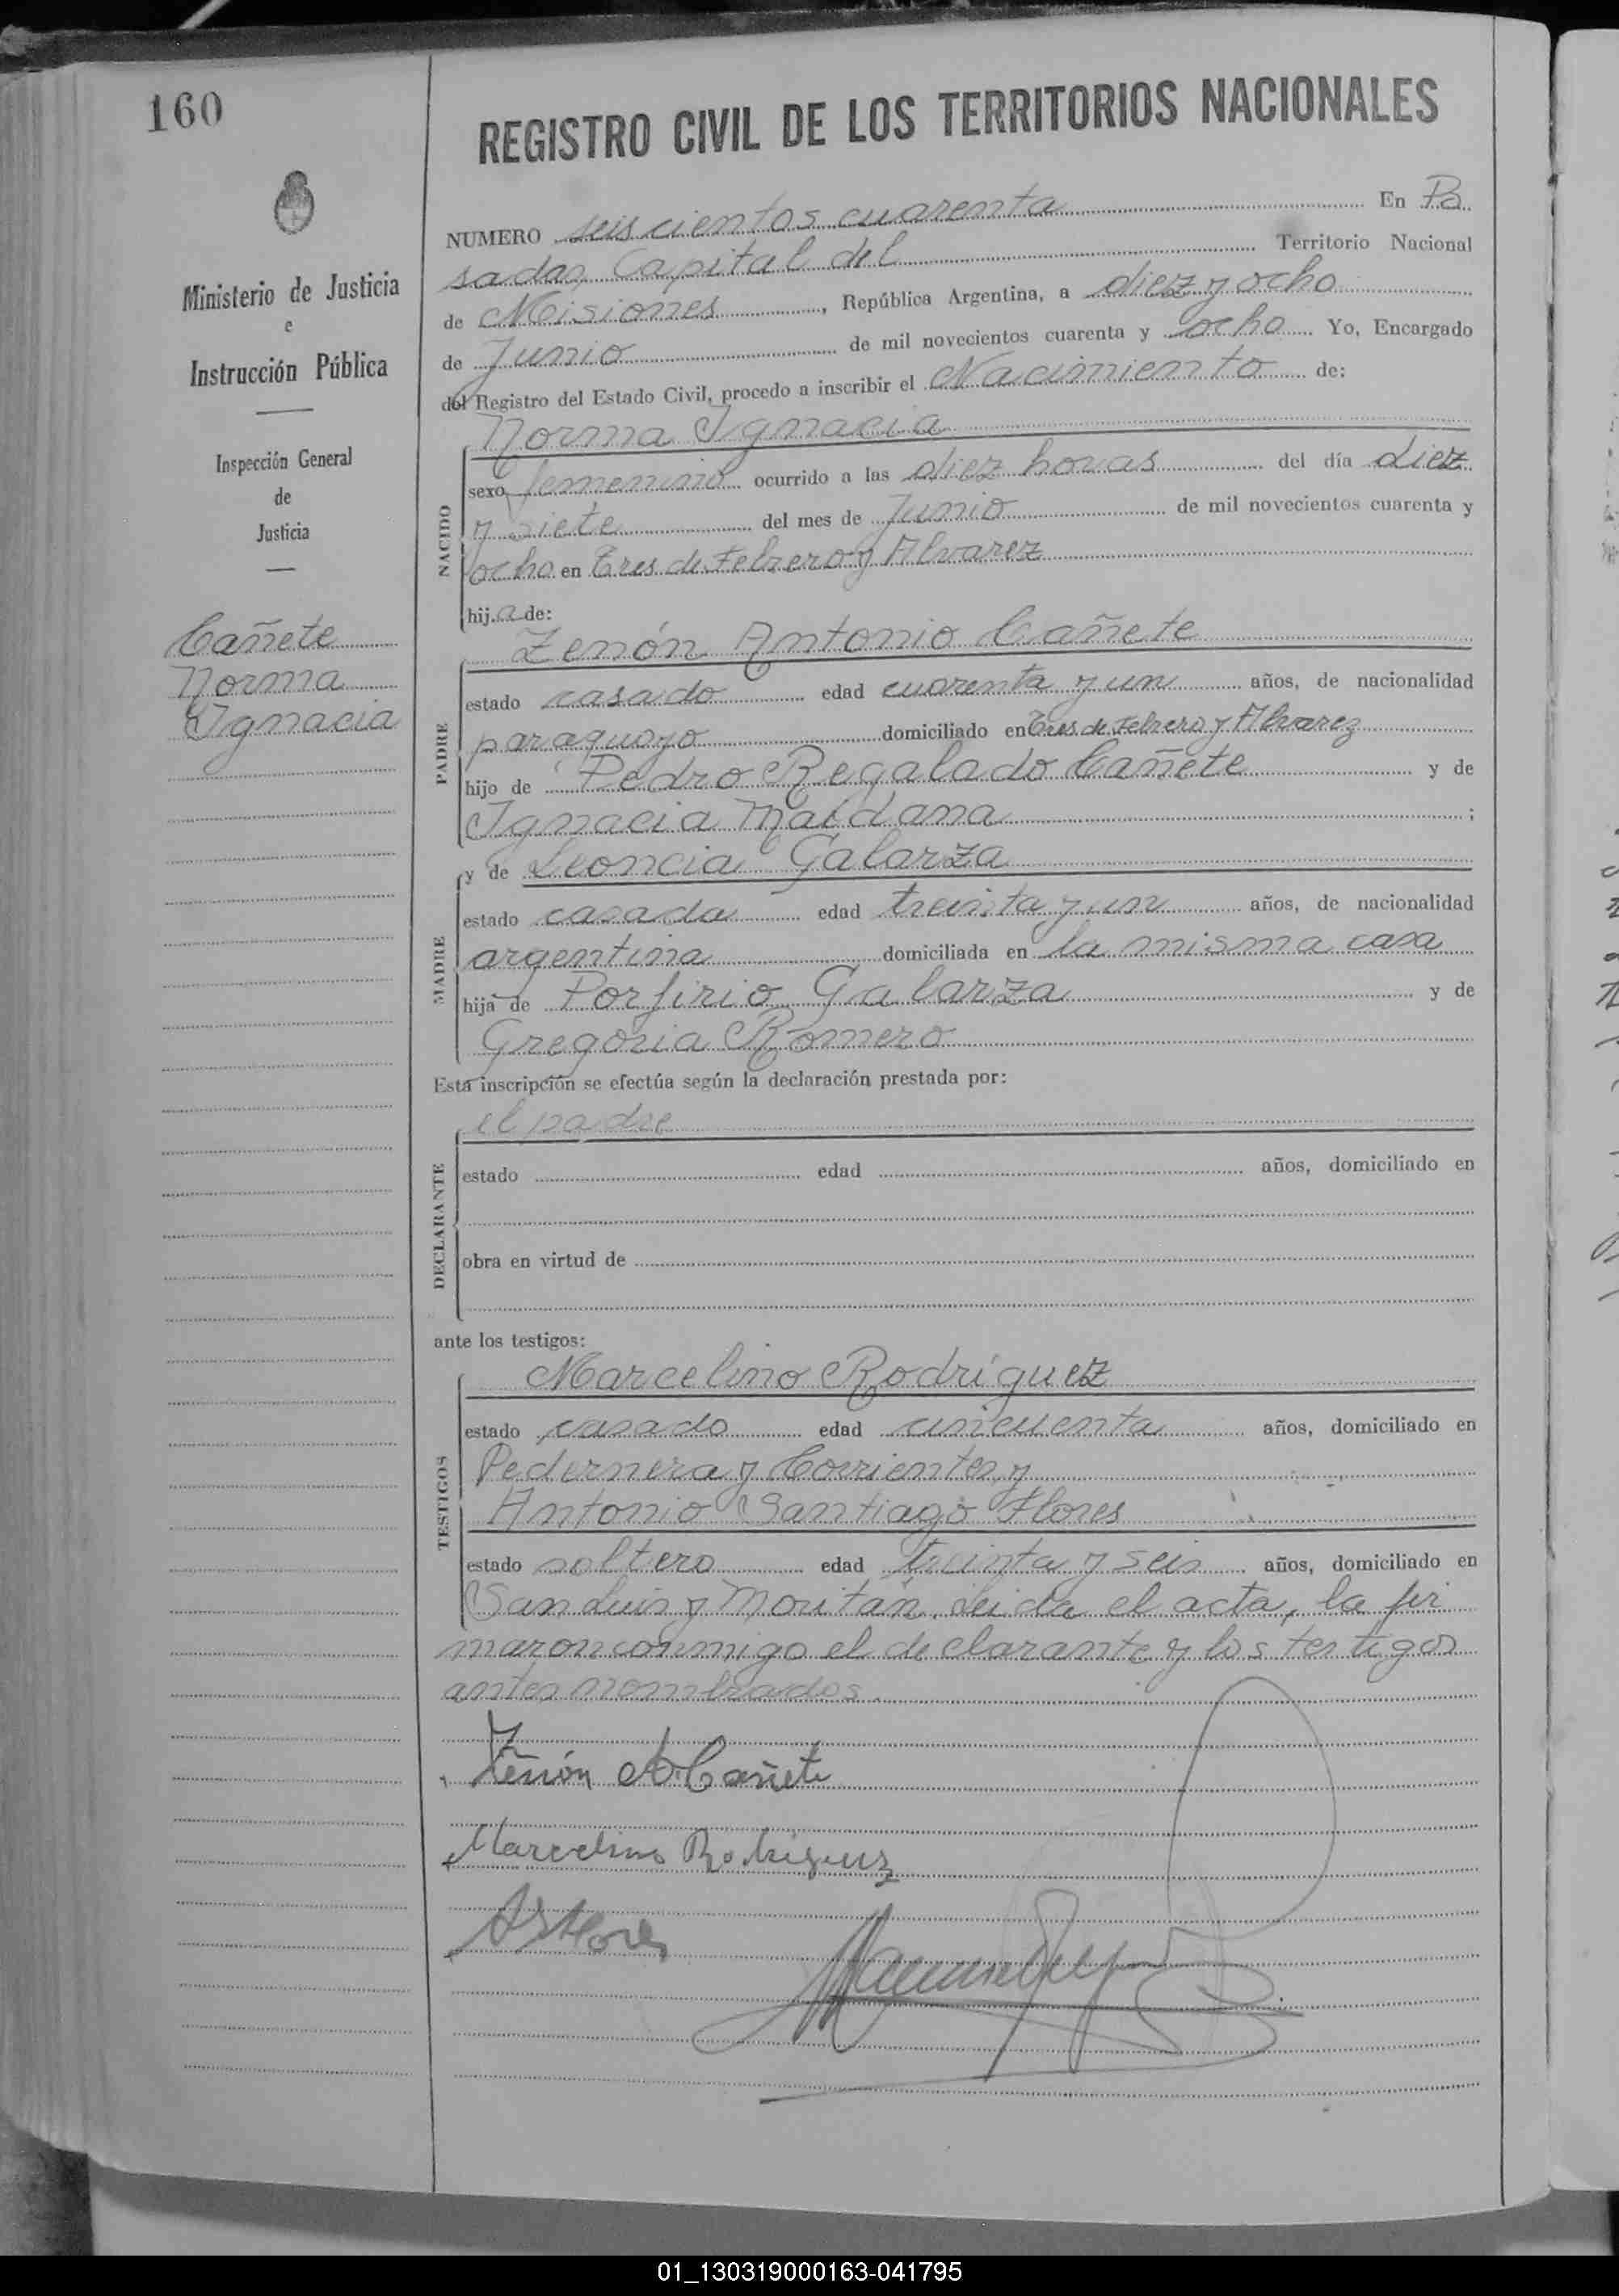 160
REGISTRO CIVIL DE LOS TERRITORIOS NACIONALES
Ministerio de Justicia
e
Instrucción Pública
Inspección General
de
Justicia
Cañete
Norma
Ignacia
NUMERO seiscientos cuarenta En Po
sadas, Capital del Territorio Nacional
de Misiones, República Argentina, a diez y ocho
de Junio de mil novecientos cuarenta y ocho Yo, Encargado
del Registro del Estado Civil, procedo a inscribir el Nacimiento de:
NACIDO
Norma Ignacia
sexo femenino ocurrido a las diez horas del día diez
y siete del mes de Junio de mil novecientos cuarenta y
ocho en Tres de Febrero y Alvarez
hija de:
PADRE
Zenón Antonio Cañete
estado casado edad cuarenta y un años, de nacionalidad
paraguayo domiciliado en Tres de Febrero y Alvarez
hijo de Pedro Regalado Cañete y de
Ignacia Maldana ;
MADRE
y de Leoncia Galarza
estado casada edad treinta y un años, de nacionalidad
argentina domiciliada en la misma casa
hija de Porfirio Galarza y de
Gregoria Romero
Esta inscripción se efectúa según la declaración prestada por:
DECLARANTE
el padre
estado edad años, domiciliado en
obra en virtud de
ante los testigos:
TESTIGOS
Marcelino Rodríguez
estado casado edad cincuenta años, domiciliado en
Pedernera y Corrientes y
Antonio Santiago Flores
estado soltero edad treinta y seis años, domiciliado en
San Luis y Moritán. Leida el acta, la fir
maron conmigo el declarante y los testigos
antes nombrados.
Zenón A. Cañete
Marcelino Rodríguez
A S Flores
01_130319000163-041795